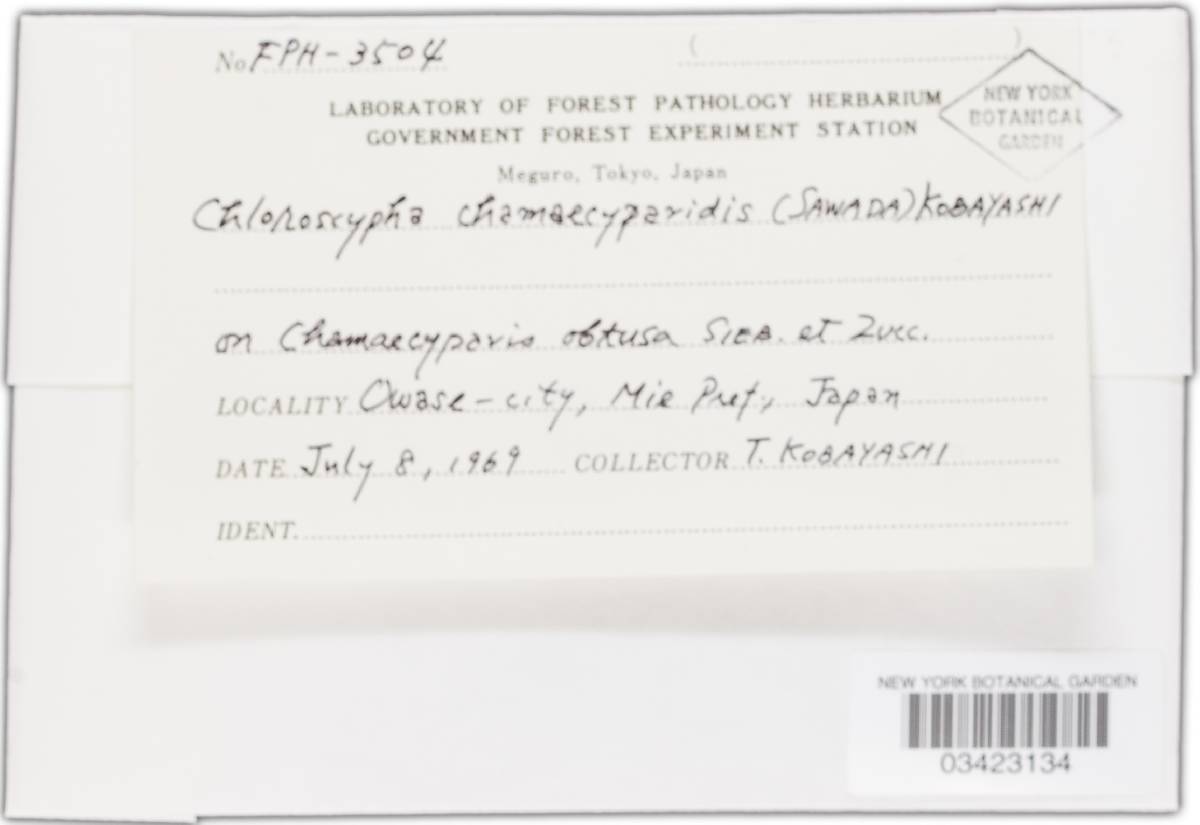 No. FPH-3504 ( )
LABORATORY OF FOREST PATHOLOGY HERBARIUM
GOVERNMENT FOREST EXPERIMENT STATION
Meguro, Tokyo, Japan
NEW YORK
BOTANICAL
GARDEN
Chloroscypha chamaecyparidis (SAWADA) KOBAYASHI
on Chamaecyparis obtusa SIEB. et Zucc.
LOCALITY Owase-city, Mie Pref., Japan
DATE July 8, 1969 COLLECTOR T. KOBAYASHI
IDENT.
NEW YORK BOTANICAL GARDEN
03423134